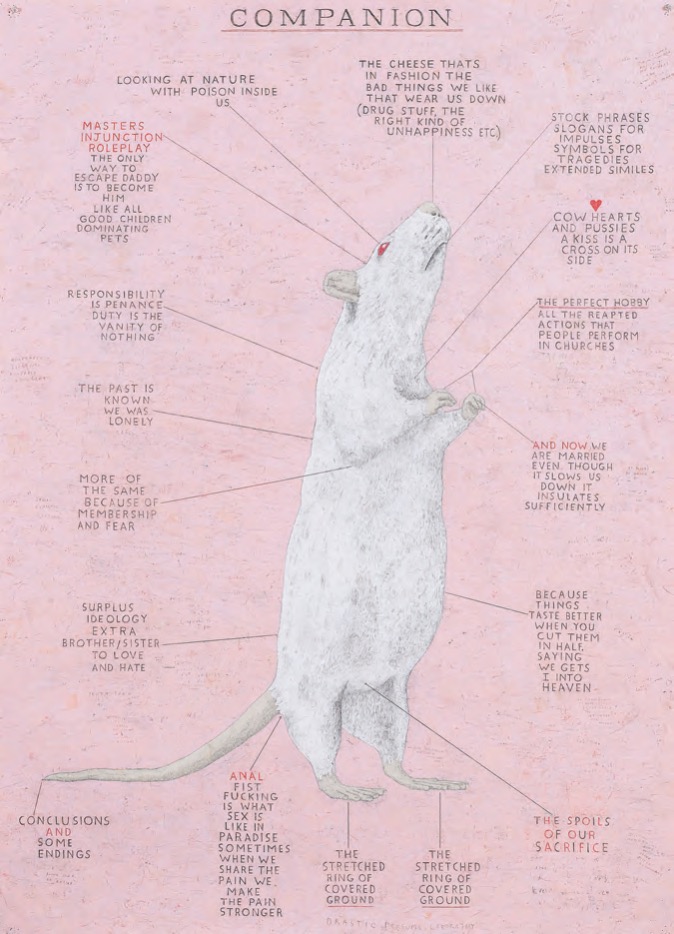 COMPANION
LOOKING AT NATURE
WITH POISON INSIDE
US
THE CHEESE THATS
IN FASHION THE
BAD THINGS WE LIKE
THAT WEAR US DOWN
(DRUG STUFF, THE
RIGHT KIND OF
UNHAPPINESS ETC)
STOCK PHRASES
SLOGANS FOR
IMPULSES
SYMBOLS FOR
TRAGEDIES
EXTENDED SIMILES
MASTERS
INJUNCTION
ROLEPLAY
THE ONLY
WAY TO
ESCAPE DADDY
IS TO BECOME
HIM
LIKE ALL
GOOD CHILDREN
DOMINATING
PETS
COW HEARTS
AND PUSSIES
A KISS IS A
CROSS ON ITS
SIDE
RESPONSIBILITY
IS PENANCE
DUTY IS THE
VANITY OF
NOTHING
THE PERFECT HOBBY
ALL THE REAPTED
ACTIONS THAT
PEOPLE PERFORM
IN CHURCHES
THE PAST IS
KNOWN
WE WAS
LONELY
AND NOW WE
ARE MARRIED
EVEN THOUGH
IT SLOWS US
DOWN IT
INSULATES
SUFFICIENTLY
MORE OF
THE SAME
BECAUSE OF
MEMBERSHIP
AND FEAR
BECAUSE
THINGS
TASTE BETTER
WHEN YOU
CUT THEM
IN HALF,
SAYING
WE GETS
I INTO
HEAVEN
SURPLUS
IDEOLOGY
EXTRA
BROTHER/SISTER
TO LOVE
AND HATE
CONCLUSIONS
AND
SOME
ENDINGS
ANAL
FIST
FUCKING
IS WHAT
SEX IS
LIKE IN
PARADISE
SOMETIMES
WHEN WE
SHARE THE
PAIN WE
MAKE
THE PAIN
STRONGER
THE
STRETCHED
RING OF
COVERED
GROUND
THE
STRETCHED
RING OF
COVERED
GROUND
THE SPOILS
OF OUR
SACRIFICE